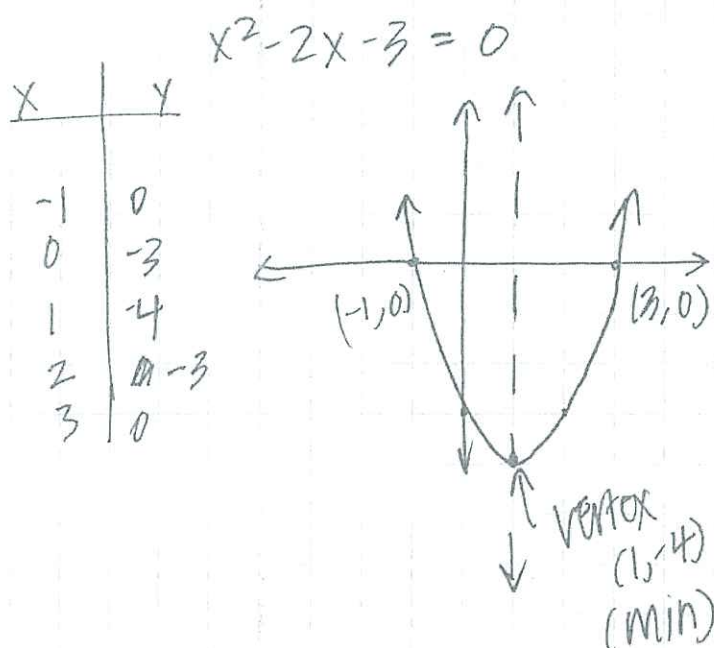 x² - 2x - 3 = 0
X Y
-1 0
0 -3
1 -4
2 -3
3 0
(-1, 0)
(3, 0)
vertex
(1, -4)
(min)